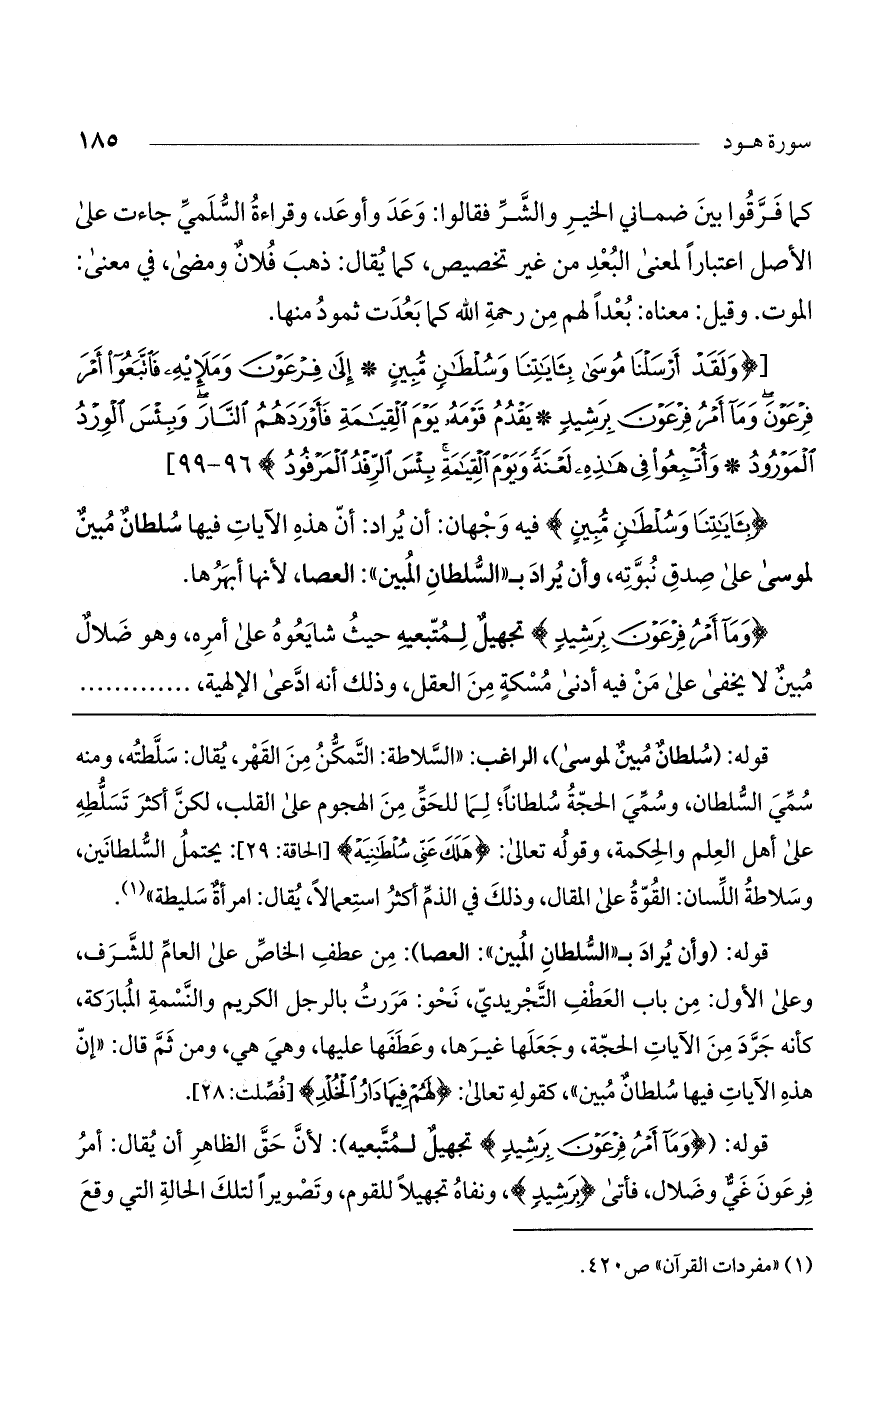 سورة هود ١٨٥
كما فَرَّقُوا بينَ ضماني الخيرِ والشَّرِّ فقالوا: وَعَدَ وأوعَد، وقراءةُ السُّلَميِّ جاءت علىٰ
الأصل اعتباراً لمعنىٰ البُعْدِ من غير تخصيص، كما يُقال: ذهبَ فُلانٌ ومضىٰ، في معنىٰ:
الموت. وقيل: معناه: بُعْداً لهم مِن رحمةِ الله كما بَعُدَت ثمودُ منها.
[﴿وَلَقَدْ أَرْسَلْنَا مُوسَىٰ بِـَٔايَـٰتِنَا وَسُلْطَـٰنٍ مُّبِينٍ * إِلَىٰ فِرْعَوْنَ وَمَلَإِيْهِۦ فَٱتَّبَعُوٓا۟ أَمْرَ
فِرْعَوْنَ ۖ وَمَآ أَمْرُ فِرْعَوْنَ بِرَشِيدٍ * يَقْدُمُ قَوْمَهُۥ يَوْمَ ٱلْقِيَـٰمَةِ فَأَوْرَدَهُمُ ٱلنَّارَ ۖ وَبِئْسَ ٱلْوِرْدُ
ٱلْمَوْرُودُ * وَأُتْبِعُوا۟ فِى هَـٰذِهِۦ لَعْنَةً وَيَوْمَ ٱلْقِيَـٰمَةِ ۚ بِئْسَ ٱلرِّفْدُ ٱلْمَرْفُودُ﴾ ٩٦-٩٩]
﴿بِـَٔايَـٰتِنَا وَسُلْطَـٰنٍ مُّبِينٍ﴾ فيه وَجْهان: أن يُراد: أنّ هذهِ الآياتِ فيها سُلطانٌ مُبينٌ
لموسىٰ علىٰ صِدقِ نُبوَّتِه، وأن يُرادَ بـ«السُّلطانِ المُبين»: العصا، لأنها أبهَرُها.
﴿وَمَآ أَمْرُ فِرْعَوْنَ بِرَشِيدٍ﴾ تجهيلٌ لِـمُتّبعيهِ حيثُ شايَعُوهُ علىٰ أمرِه، وهو ضَلالٌ
مُبينٌ لا يخفىٰ علىٰ مَنْ فيه أدنىٰ مُسْكةٍ مِنَ العقل، وذلك أنه ادَّعىٰ الإلهية، .............
قوله: (سُلطانٌ مُبينٌ لموسىٰ)، الراغب: «السَّلاطة: التَّمكُّنُ مِنَ القَهْر، يُقال: سَلَّطتُه، ومنه
سُمِّيَ السُّلطان، وسُمِّيَ الحجّةُ سُلطاناً؛ لِـمَا للحَقِّ مِنَ الهجوم علىٰ القلب، لكنَّ أكثرَ تَسَلُّطِهِ
علىٰ أهل العِلم والحِكمة، وقولُه تعالىٰ: ﴿هَلَكَ عَنِّى سُلْطَـٰنِيَهْ﴾ [الحاقة: ٢٩]: يحتملُ السُّلطانَين،
وسَلاطةُ اللِّسان: القُوّةُ علىٰ المقال، وذلكَ في الذمِّ أكثرُ استِعمالاً، يُقال: امرأةٌ سَليطة»(١).
قوله: (وأن يُرادَ بـ«السُّلطانِ المُبين»: العصا): مِن عطفِ الخاصِّ علىٰ العامِّ للشَّرَف،
وعلىٰ الأول: مِن باب العَطْفِ التَّجريديّ، نَحْو: مَرَرتُ بالرجل الكريم والنَّسْمةِ المُبارَكة،
كأنه جَرَّدَ مِنَ الآياتِ الحجّة، وجَعَلَها غيرَها، وعَطَفَها عليها، وهيَ هي، ومن ثَمَّ قال: «إنّ
هذهِ الآياتِ فيها سُلطانٌ مُبين»، كقولهِ تعالىٰ: ﴿لَهُمْ فِيهَا دَارُ ٱلْخُلْدِ﴾ [فُصِّلت: ٢٨].
قوله: (﴿وَمَآ أَمْرُ فِرْعَوْنَ بِرَشِيدٍ﴾ تجهيلٌ لـمُتَّبعيه): لأنَّ حَقَّ الظاهرِ أن يُقال: أمرُ
فِرعَونَ غَيٌّ وضَلال، فأتىٰ ﴿بِرَشِيدٍ﴾، ونفاهُ تجهيلاً للقوم، وتَصْويراً لتلكَ الحالةِ التي وقعَ
(١) «مفردات القرآن» ص٤٢٠.